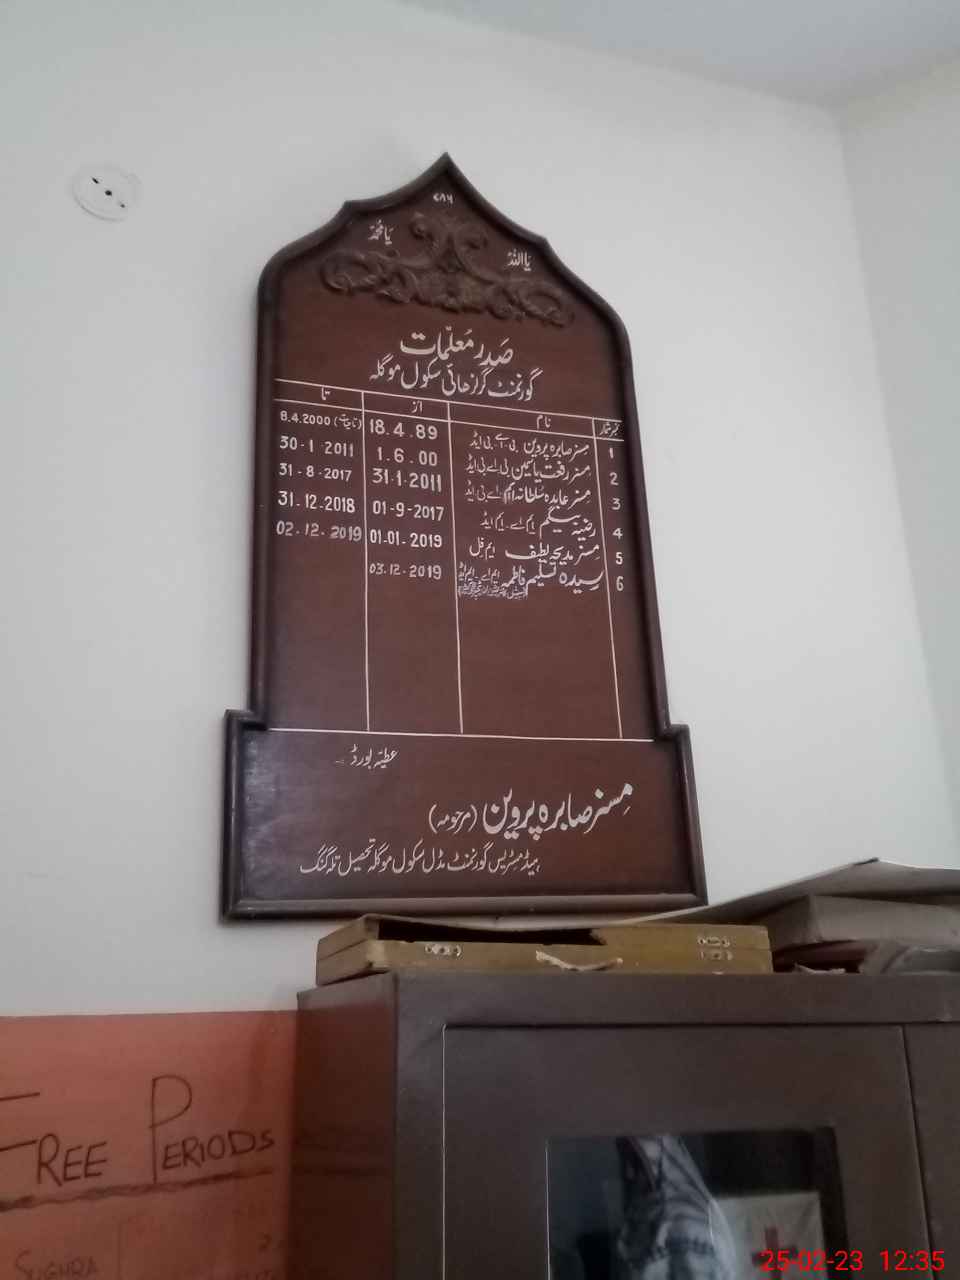 ۷۸۶
یا اللہ یا محمدؐ
صَدر مُعلّمات
گورنمنٹ گرلز ھائی سکول موگلہ
نمبر شمار نام از تا
1 مسز صابرہ پروین بی اے بی ایڈ 18.4.89 8.4.2000 (تاحیات)
2 مسز رفعت یاسمین بی اے بی ایڈ 1.6.00 30-1-2011
3 مسز عابدہ سُلطانہ ایم اے بی ایڈ 31-1-2011 31-8-2017
4 رضیہ بیگم ایم اے ایم ایڈ 01-9-2017 31-12-2018
5 مسز مدیحہ لطیف ایم فِل 01-01-2019 02-12-2019
6 سیدہ تسلیم فاطمہ ایم اے ایم ایڈ 03.12-2019
عطیہ بورڈ
مسز صابرہ پروین (مرحومہ)
ہیڈ مسٹریس گورنمنٹ مڈل سکول موگلہ تحصیل تلہ گنگ
FREE PERIODS
SUGHRA
25-02-23 12:35